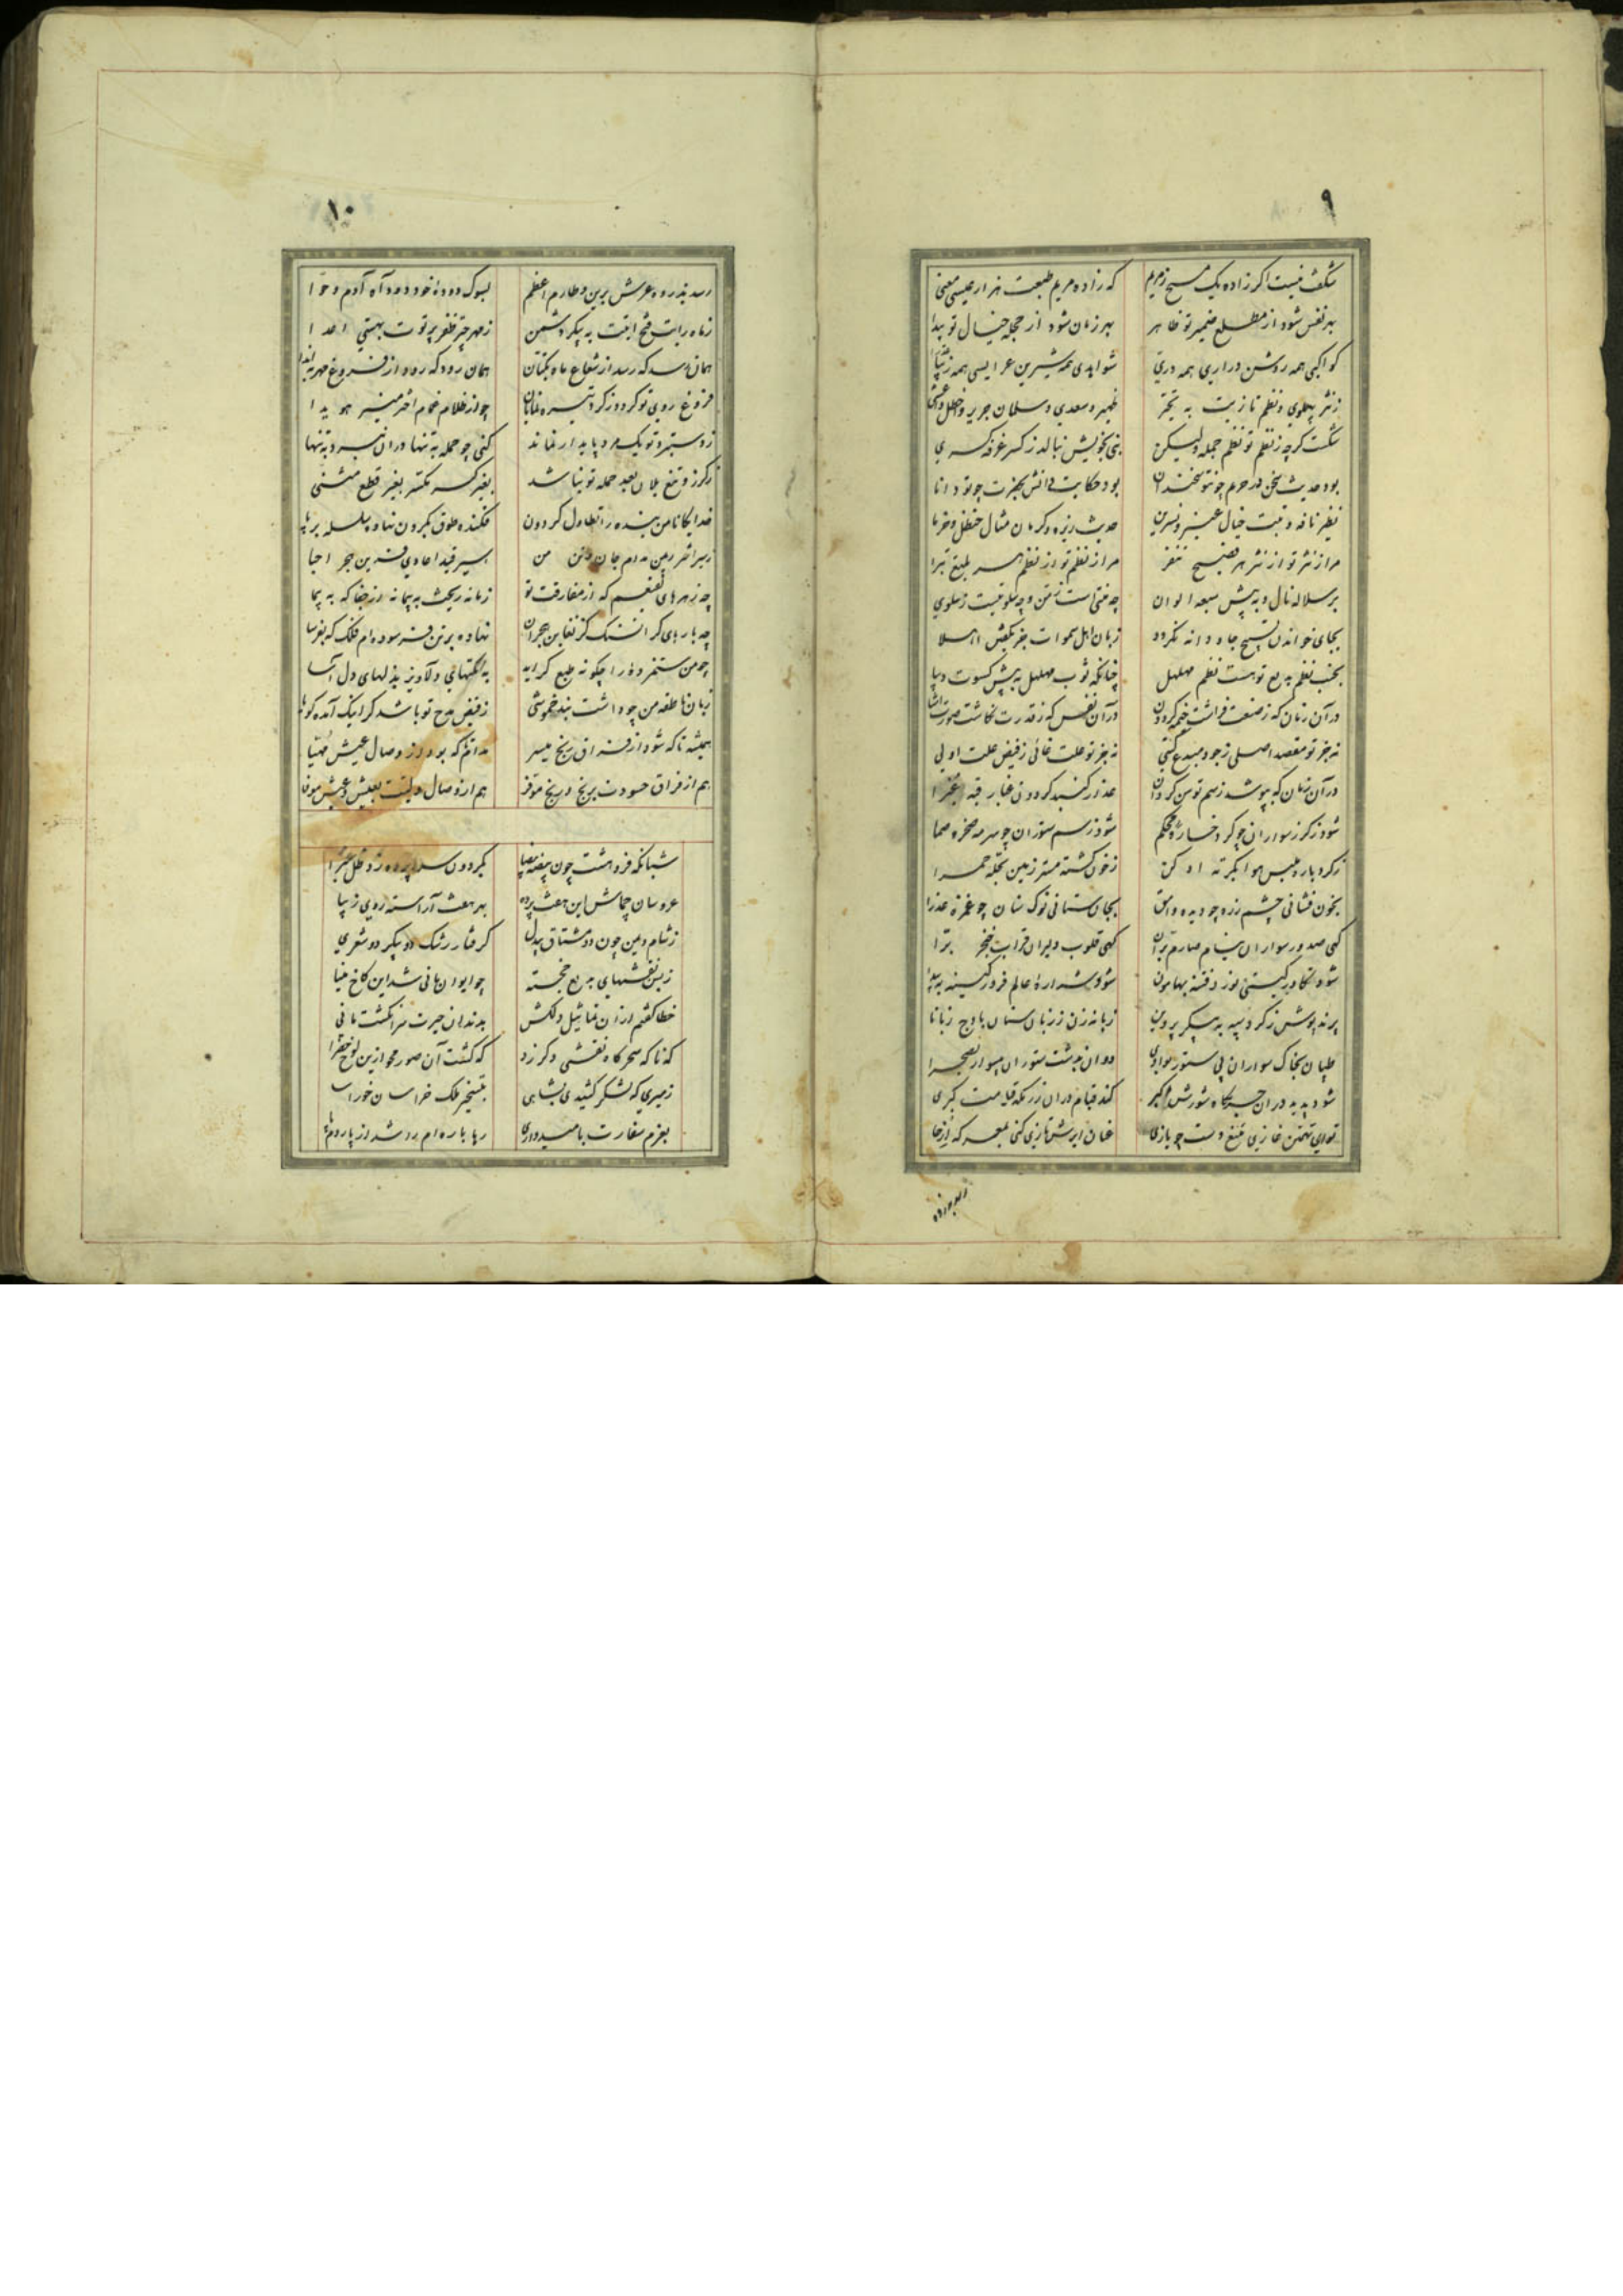 ۹
شگفت نیست اگر زاده یک مسیح ز مریم که زاده مریم طبعت هزار عیسی معنی
بهر نفس شود از مطلع ضمیر تو ظاهر بهر زمان شود از حجله خیال تو پیدا
کواکبی همه روشن دراری همه دری شواهدی همه شیرین عرایسی همه زیبا
ز نثر پهلوی و نظم تازیت به تحیر ظهیر و سعدی و سلمان جریر و اخطل و اعشی
شکست گرچه ز نظم تو نظم جمله ولیکن بنی بخویش نبالد ز کسر غرفه کسری
بود حدیث سخن در حرم چو تو سخندان بود حکایت دانش بحضرت چو تو دانا
نظیر نافه و تبت خیال عنبر و نسرین حدیث زیره و کرمان مثال حنظل و خرما
مرا ز نثر تو از نثر هر فصیح تنفر مرا ز نظم تو از نظم هر بلیغ تبرا
بر سلاله نال و به پیش سبعه الوان چه منتی است ز من و چه سلوتیست ز سلوی
بجای خواندن تسبیح جاودانه نگردد زبان اهل سموات جز بگفتن املا
بجنب نظم بدیع تو هست نظم مهلهل چنانکه ثوب مهلهل به پیش کسوت دیبا
در آن زمان که ز صنعت فراشت خیمه گردون در آن نفس که ز قدرت نگاشت صورت اشیا
نه جز تو مقصد اصلی ز جود مبدع گیتی نه جز تو علت غائی ز فیض علت اولی
در آن زمان که بپوشد ز سم توسن گردان عذار گنبد گردون غبار قبه غبرا
شود ز گرز سواران چو گرد خاره محکم شود ز سم ستوران چو سرمه صخره صما
ز گرد باره ملبس هوا بکرته ادکن ز خون کشته مستر زمین بحله حمرا
بخون فشانی چشم زره چو دیده وامق بجان ستانی نوک سنان چو غمزه عذرا
کهی صدور سواران نیام صارم بران کهی قلوب دلیران قراب خنجر برا
پرند پوش ز گرد سپه به پیکر پروین زبانه زن ز زبان سنان باوج زبانا
طپان بخاک سواران پی ستور بوادی دوان بدشت ستوران بی سوار بصحرا
شود پدید در آن جنگ گاه شورش محشر کند قیام در آن رزمگه قیامت کبری
تو ای تهمتن غازی بتیغ دست چو یازی عنان ابرش تازی کنی بمعرکه ارخا
۱۰
رسد بذروه عرش برین و طارم اعظم لبوک دوده خود دود آه آدم و حوا
ز ماه رایت فتح آیتت به پیکر دشمن ز مهر چتر ظفر پرتوت بهستی اعدا
همان رسد که رسد از شعاع ماه بکتان همان رود که رود از فروغ مهر بانداء
فروغ روی تو گردد ز گرد تیره نمایان چو از ظلام غمام اختر منیر هویدا
ز دستبرد تو یک مرد پایدار نماند کنی چو حمله به تنها در آن نبرد به تنها
ز گرز و تیغ یلان بعد حمله تو نباشد بغیر کسر مکسر بغیر قطع مثنی
خدایگانا من بنده را تطاول گردون فکنده طوق بگردن نهاده سلسله بر پا
اسیر قید اعادی قرین هجر احبا
چه زهرهای نقیعم که از مفارقت تو زمانه ریخت به پیمانه از جفا که به پیما
چه بارهای گران سنگ کز تغابن هجران نهاده بر تن فرسوده‌ام فلک که بفرسا
چو من ستمزده را چگونه طبع گراید به نکتهای دلاویز بذلهای دل آسا
زبان ناطقه من چو داشت بند خموشی ز فیض مدح تو باشد گر اینک آمده گویا
همیشه تا که شود از فراق رنج میسر مدام که بود از وصال عیش مهیا
هم از فراق حسودت برنج و رنج موفر هم از وصال ولیت بعیش و عیش موفا
شبانگه فروهشت چون بیضه بیضا بگردون سراپرده زد ظل غبرا
عروسان جماش این هفت پرده بهر هفت آراسته روی زیبا
ز شام و یمن چون دو مشتاق بیدل گرفتار رشک دو پیکر دو شعری
ز بس نقشهای بدیع خجسته چو ایوان مانی شد این کاخ مینا
خطا گفتم از آن تماثیل دلکش بدندان حیرت سرانگشت مانی
که ناگه سحرگاه نقشی دگر زد که گشت آن صور محو ازین لوح خضرا
زمیری که لشکر کشیدی بشاهی بتسخیر ملک خراسان خورآسا
بعزم سفارت بامیدواری